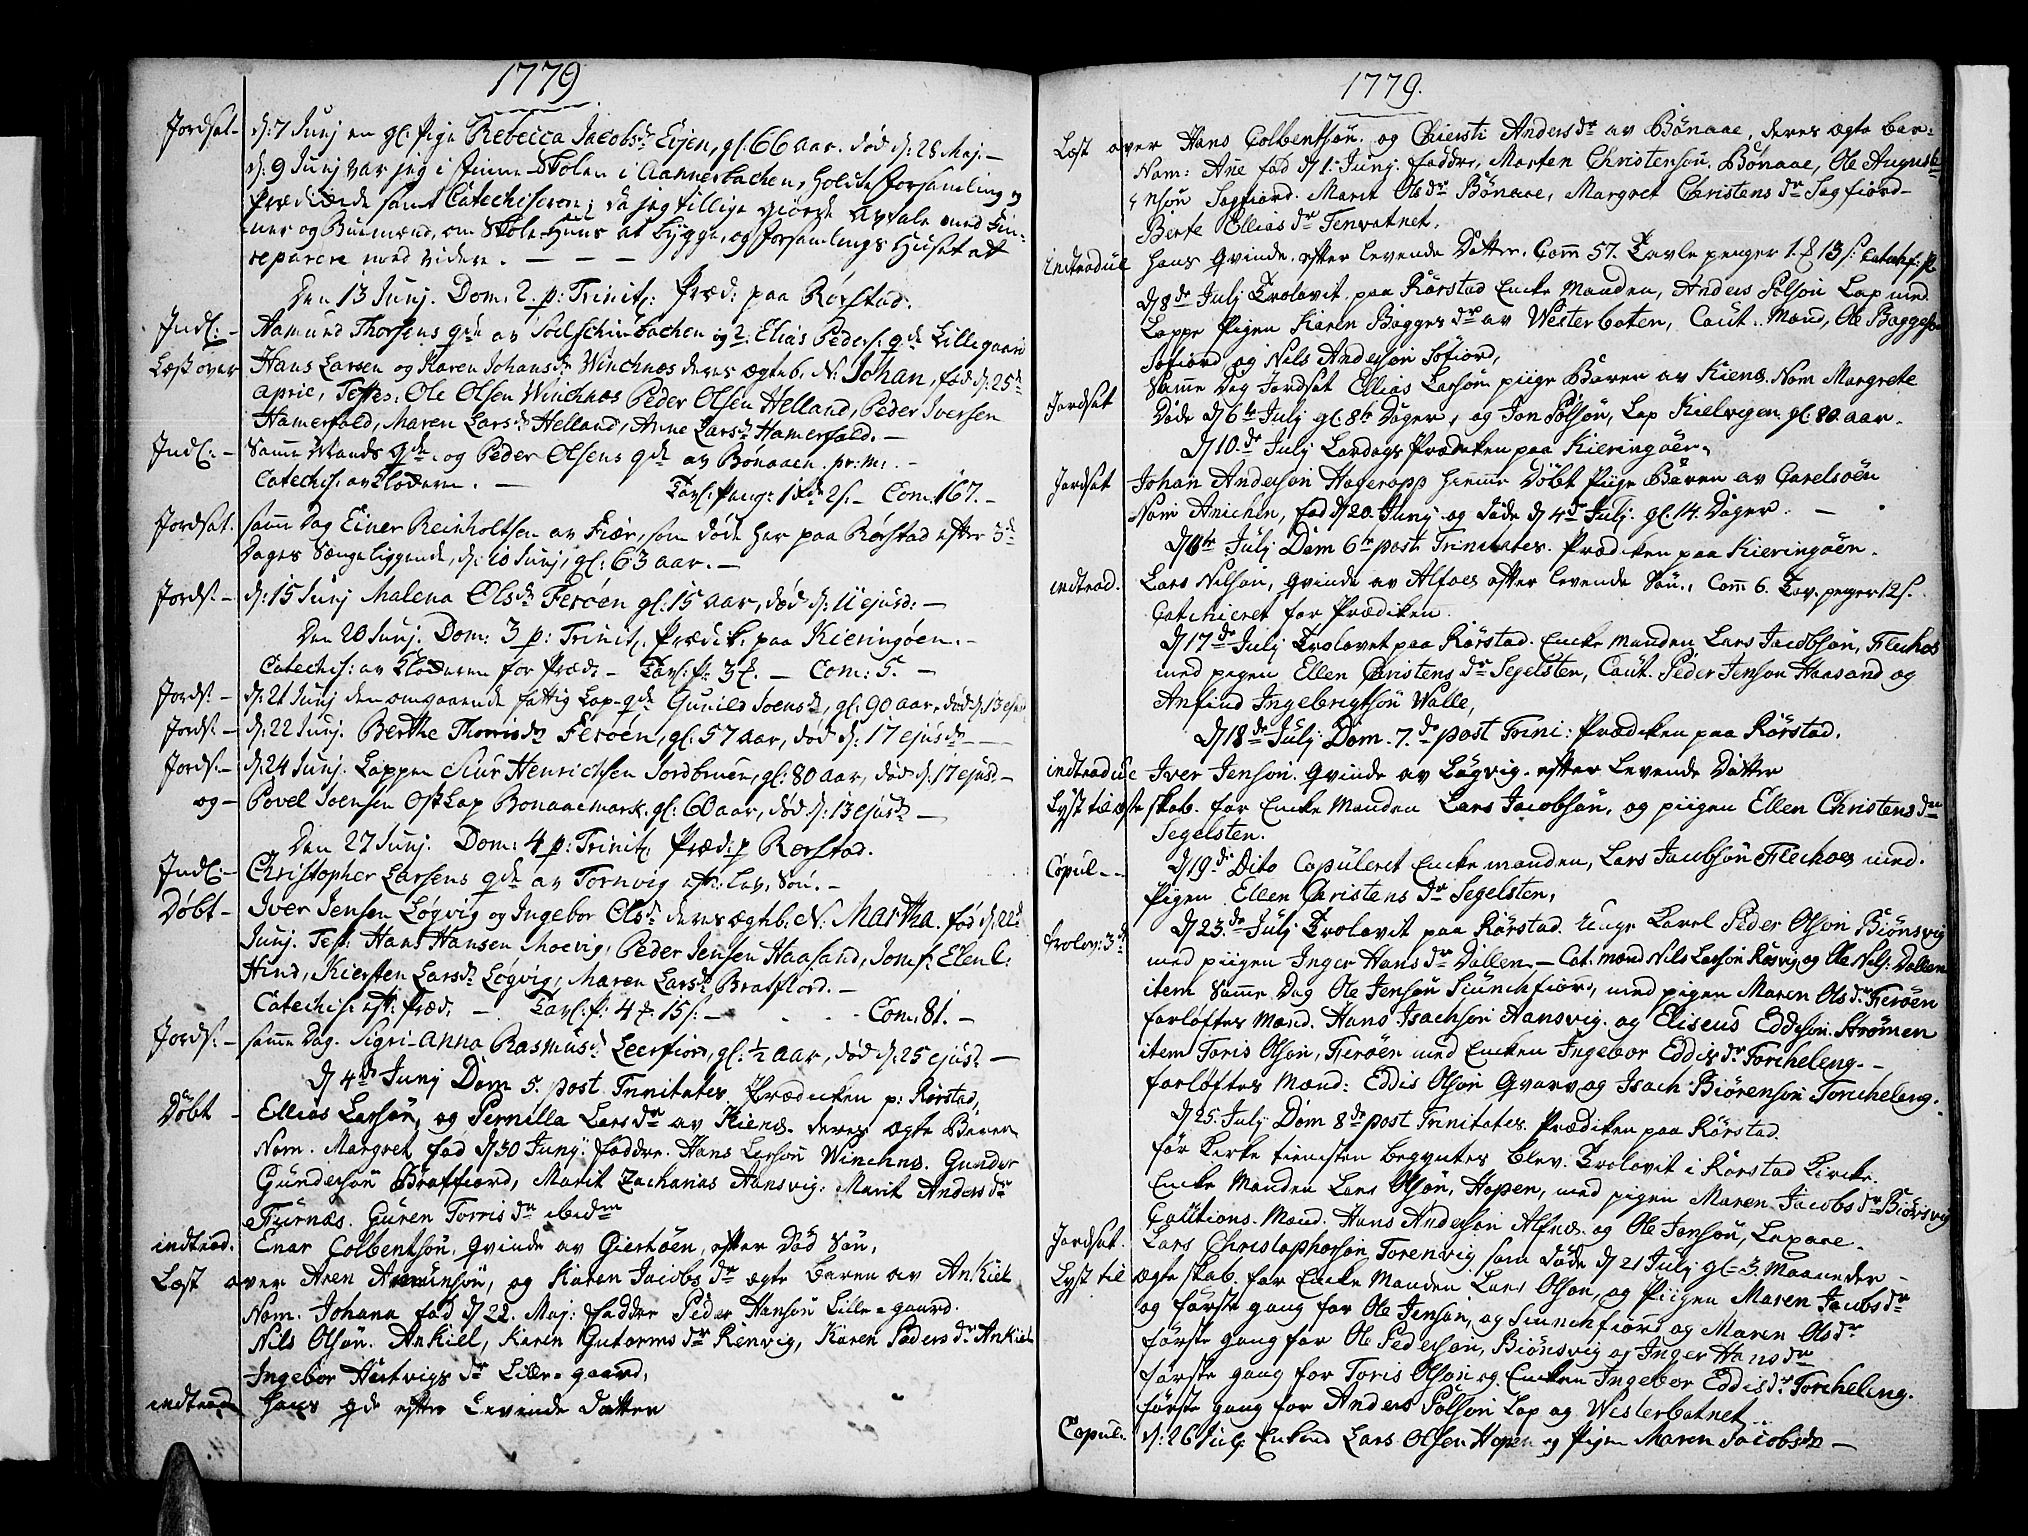 1779
Jordfat- d: 7 Junj en gl: Pige Rebecca Jacobsdr Evjen, gl: 66 aar. død d: 28 Maj. -
d: 9 Junj var jeg i Finne Skolen i Aannesbachen, holdte forsamling og
Prædikede samt Catechiseren; da jeg tillige giorde Avtale med Fin-
ner og Buemænd, om Skole-Huus at bygge, og forsamlings Huset att
reparere med videre. - - -
Den 13 Junj. Dom: 2. p: Trinit: Præd: paa Rørstad.
Indl: - Aamund Thorsens qde av og 2. Elias Peders: qde Lillegaard
Læst over Hans Larsen og Karen Johansdr Winchnæs deres ægteb. N: Johan, fød d: 25de
Aprie, Testes. Ole Olsen Winchnæs Peder Olsen Helland, Peder Iversen
Hamerfald, Maren Larsdr Helland, Anne Larsdr Hamerfald. -
Indl: - Samme Mands qde og Peder Olsens qde av Bønaaen. pr: m: -
Catechis: av Kloderne. - Tavl: Penge 1 2 s. - Com: 167. -
Jordfat. samme Dag Einer Reinholtsen av Fiær, som døde her paa Rørstad efter 3de
Dages Sængeliggende, d: 10 Junj, gl: 63 aar. -
Jordf. - d: 15 Junj Malena Olsdr Ferøen gl: 15 aar, død d: 11 ejusd: -
Den 20 Junj. Dom: 3 p: Trinit: Prædik: paa Kieringøen. -
Catechis: av Kloderne for Præd: - Tavl: P: 3 - Com: 5. -
Jordf. - d: 21 Junj den omgaaende fattig Lap-qde Gunild Joensdr, gl: 90 aar, død d: 13 ejusd
Jordf. - d: 22 Junj. Berthe Thorrisdr Ferøen, gl: 57 aar, død d: 17 ejusdr -
Jordf. - d: 24 Junj. Lappen Siur Henrichsen Sordbruen, gl: 80 aar, død d: 17 ejusd -
og - Povel Joensen OstLap Bonaaemark. gl: 60 aar, død d: 13 ejusd -
Den 27 Junj. Dom: 4 p: Trinit: Præd: p Rørstad.
Indl: - Christopher Larsens qde av Tornvig eft: Lev. Søn. -
Døbt - Iver Jensen Løgvig og Ingebor Olsdr deres ægteb. N: Martha. fød d: 22de
Junj. Test: Hans Hansen Moevig, Peder Jensen Haasand, Jomf: Elen C:
Hind, Kiersten Larsdr Løgvig, Maren Larsdr Bratfiord. -
Catechis: eft: Præd. - Tavl: P: 4 15 s. - Com: 81. -
Jordf. - samme Dag. Sigri-Anna Rasmusdr Leerfiord, gl: 1/2 aar, død d: 25 ejusd -
D 4de Junj Dom 5. post Trinitates. Prædicken p: Rørstad,
Døbt - Ellias Larsøn, og Pernilla Larsdr av Kienæ. deres Ægte Baren
Nom. Margret fød D 30 Junj: faddre. Hans Lersøn Winchnæ. Gunder
Gundersøn Bratfiord, Marit Zachanias Hansvig: Marit Andersdr
Fiurnæs. Guren Torrisdr ibidm
indtrod. Enar Colbentsøn. Qvinde av Gierløen, efter Død Søn,
Læst over Aren Amunsøn, og Karen Jacobsdr ægte baren av Ankiel
Nom. Johana fød D 22. Maj: faddre Peder Hansøn Lille=gaard.
Nils Olsøn. Ankiel, Karen Gutormsdr Renvig, Karen Pedersdr Ankiel
Ingebor Hartvigsdr Lille=gaard,
indtrod Hans qde efter Levende datter
1779.
Læst over Hans Colbentsøn. og Chiersti Andersdr av Bønaae, deres ægte bar=
Nom: Ane fød D 1: Junj: faddre, Morten Christensøn. Bønaae, Ole Auguste
nsøn Sagfiord. Marit Olsdr Bønaae, Margret Christensdr Sagfiord-
Berte Elliasdr Tenvatnet.
indtraduc Hans Qvinde. efter levende Datter. Com 57. Tavle penger 1. 13 s:
D 8de Julj Trolovit. paa Rørstad Encke Manden, Anders Polsøn Lap med
Lappe Pigen Karen Baggesdr av Westerbaten, Caut.. Mænd, Ole Baggesøn
Sofiord og Nils Andersøn Sofiord,
Jordsat Samme Dag Jordsat Ellias Larsøn piige Baren av Kienæ. Nom Margrete
Døde D 6te Julj gl: 8te Dager, og Jon Polsøn, Lap Kielvigen gl: 80 aar.
D 10de Julj Lørdags Prædicken paa Kieringøen.
Jordsat Johan Andersøn Hafcrapp Hiemme Døbt Piige Baren av Carelsøen
Nom Anichen, fød D 20. Junj og døde D 4de Julj. gl: 14. Dager. -
D 11te Julj Dom 6te post Trinitates. Prædicken paa Kieringøen.
indtrod. Lars Nilsøn, Qvinde av Alfnes efter levende Søn., Com 6. Tav. penger 12 s.
Catichieret for Prædicken.
D 17de Julj Trolovet paa Rørstad. Encke Manden Lars Jacobsøn, Flechæs
med pigen Ellen Christensdr Segelsten, Caut. Peder Jensøn Haasand og
Anfind Ingebrigtsøn Walle,
D 18de Julj Dom. 7de post Trini: Prædicken paa Rørstad.
indtraduc Iver Jensøn. Qvinde av Løgvig. efter Levende Datter
Lyst til ægteskab. for Encke Manden Lars Jacobsøn, og piigen Ellen Christensdr
Segelsten.
Copul - - D 19de Dito Copuleret Encke manden, Lars Jacobsøn Flechoes med.
Pigen Ellen Christensdr Segelsten,
trolov: 3de D 23de Julj Trolovit paa Rørstad. Unge Karel Peder Olsøn Biönsvig
med piigen Inger Hansdr Dallen - Cat: mænd Nils Larsøn Røsvig og Ole Nils: Dallen
item Samme Dag Ole Jensøn Siunchfiord, med pigen Maren Olsdr Ferøen
forløftes Mænd. Hans Isachsøn Hansvig. og Eliseus Eddesøn. Strømen
item Toris Olsøn, Ferøen med Encken Ingebor Eddisdr Torcheleng. -
forløftes Mænd: Eddis Olsøn Qvarv og Isach Biörensøn Torcheleng.
D 25. Julj Dom 8de post Trinitates. Prædicken paa Rørstad.
før Kirke tienesten begyntes blev. Trolovit i Rørstad Kircke.
Encke Manden Lars Olsøn, Hopen, med pigen Maren Jacobsdr Biönsvig
Cautions. Mænd. Hans Andersøn Alfnæ. og Ole Jensøn, Lapaae -
Jordsat. Lars Christophersøn Torenvig som døde D 21 Julj gl=3. Maaneder -
Lyst til ægteskab. for Encke Manden Lars Olsøn, og Piigen Maren Jacobsdr
og første gang for Ole Jensøn, og Siunchfiord og Maren Olsdr
første gang for Ole Pedersøn, Biönsvig og Inger Hansdr
første gang for Toris Olsøn og Encken Ingebor Eddisdr Torcheleng.
første gang for Anders Polsøn Lap og Westerbatnet
Copul. d: 26 Julj. Enkem Lars Olsen Hopen og Pigen Maren Jacobsdr -